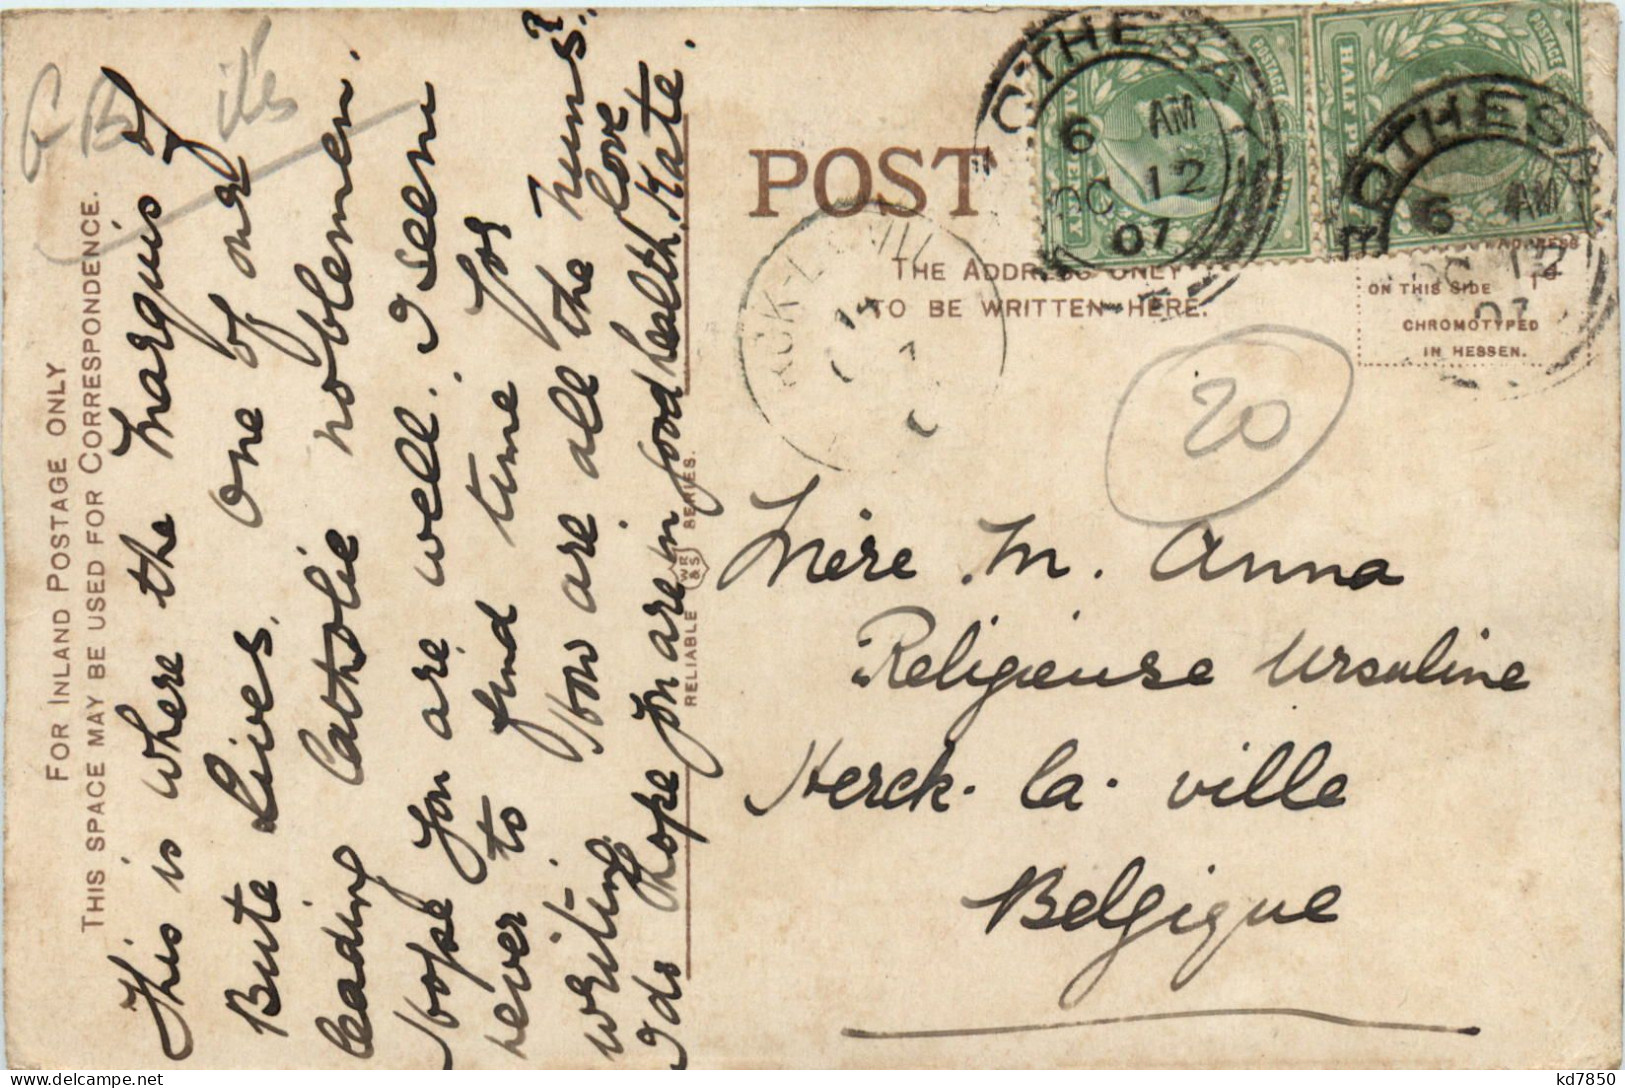 FOR INLAND POSTAGE ONLY
THIS SPACE MAY BE USED FOR CORRESPONDENCE.
GB
This is where the Marquis of
Bute Lives. One of our
leading Catholic noblemen.
Hope you are well. I seem
never to find time for
writing. How are all the nuns?
I do hope you are in good health, Kate.
love
RELIABLE WR&S SERIES.
POST
THE ADDRESS ONLY
TO BE WRITTEN HERE.
ROTHESAY
6 AM
OC 12
07
ROTHESAY
6 AM
OC 12
07
POSTAGE
HALF PENNY
POSTAGE
POSTAGE
ADDRESS
ON THIS SIDE
CHROMOTYPED
IN HESSEN.
20
Mère M. Anna
Religieuse Ursuline
Herck-la-ville
Belgique
kd7850